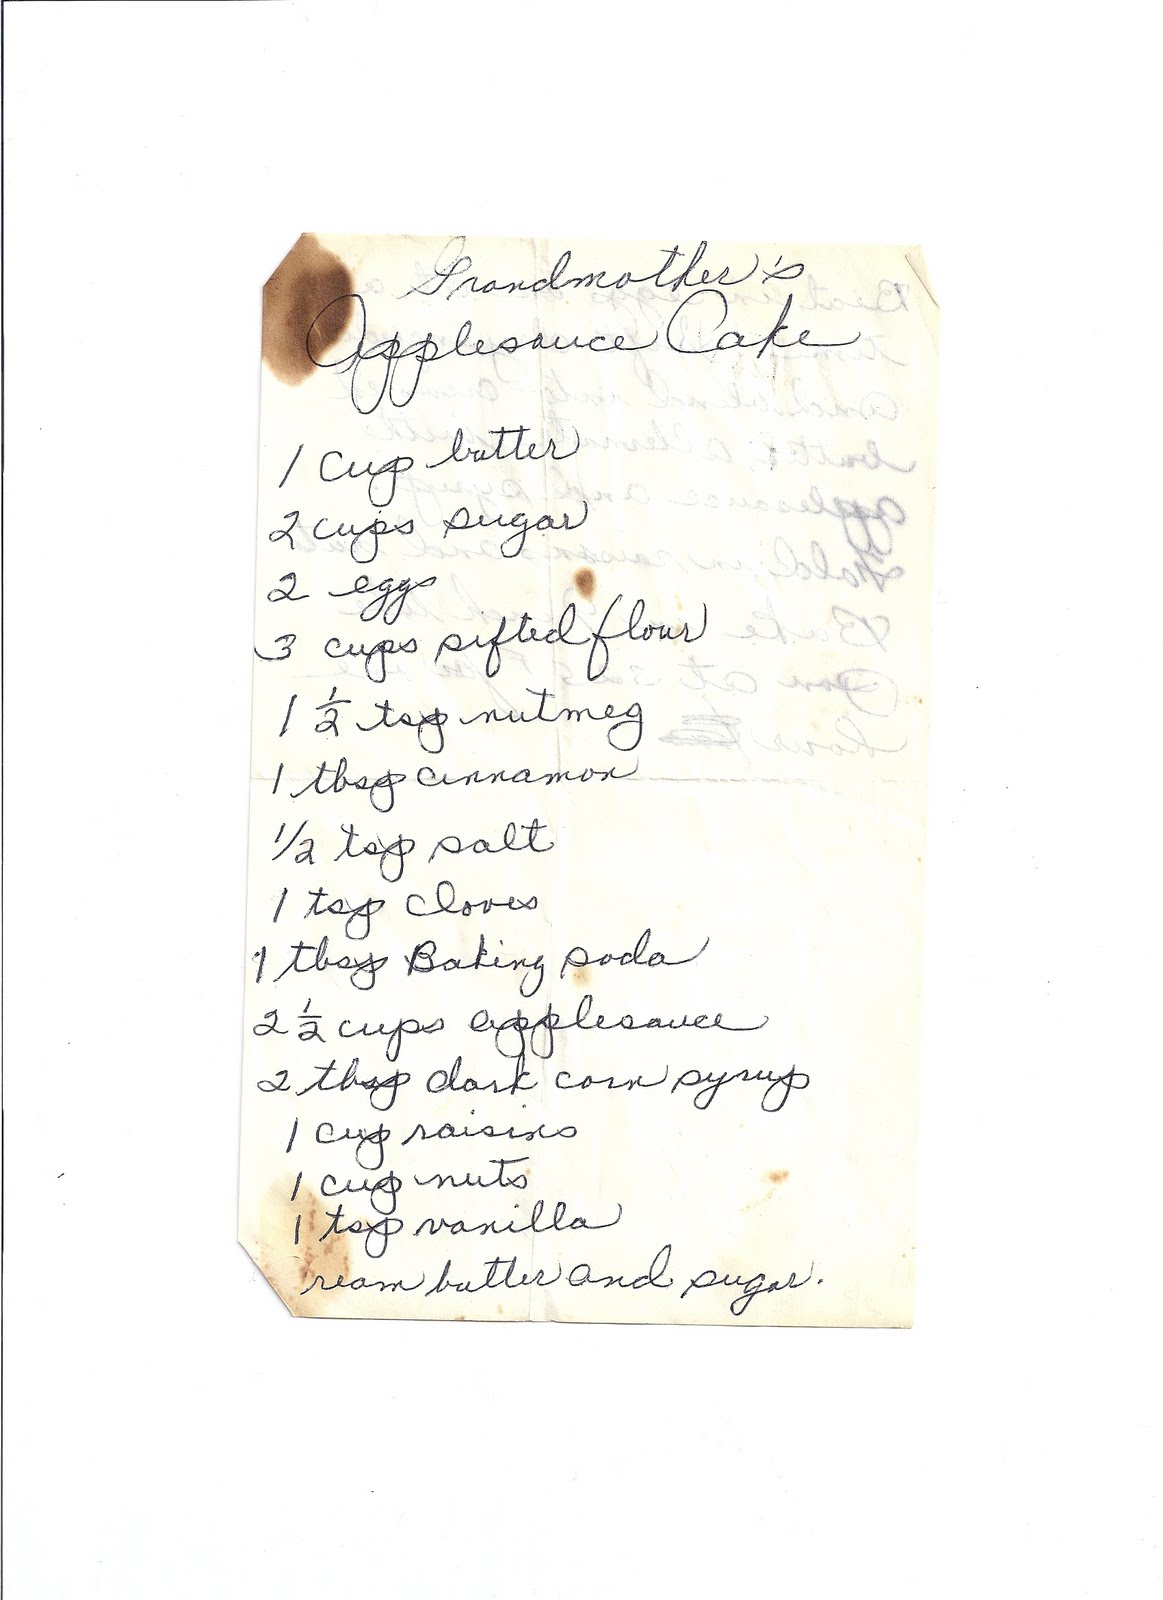 Grandmother's
Applesauce Cake
1 cup butter
2 cups sugar
2 eggs
3 cups sifted flour
1 1/2 tsp nutmeg
1 tbsp cinnamon
1/2 tsp salt
1 tsp cloves
1 tbsp Baking soda
2 1/2 cups applesauce
2 tbsp dark corn syrup
1 cup raisins
1 cup nuts
1 tsp vanilla
ream butter and sugar.